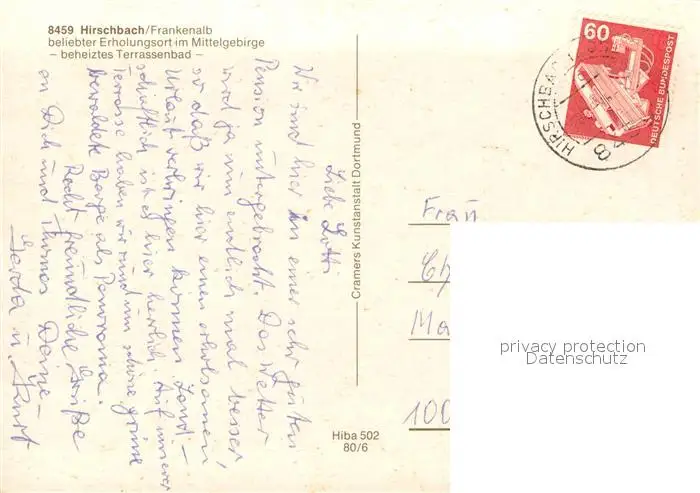 8459 Hirschbach/Frankenalb
beliebter Erholungsort im Mittelgebirge
– beheiztes Terrassenbad –
Liebe Lotti
Wir sind hier in einer sehr guten
Pension untergebracht. Das Wetter
wird ja nun endlich mal besser
so daß wir hier einen erholsamen
Urlaub verbringen können. Land-
schaftlich ist es hier herrlich. Auf unserer
Terrasse haben wir rund um schöne grüne
bewaldete Berge als Panorama.
Recht freundliche Grüße
an Dich und Thomas Deine
Gerda u. Kurt
Cramers Kunstanstalt Dortmund
Hiba 502
80/6
60
DEUTSCHE BUNDESPOST
HIRSCHBACH
8
Frau
Ma
100
privacy protection
Datenschutz